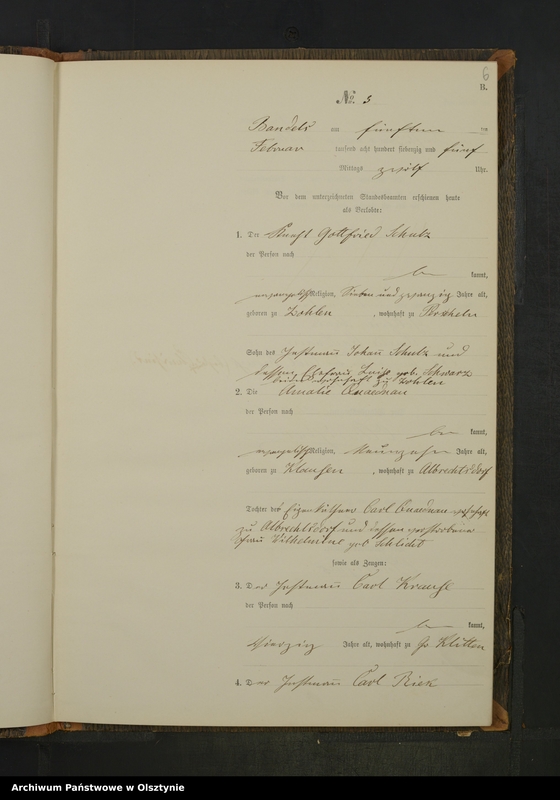 6
B.
No. 5
Bandels am fünften
Februar tausend acht hundert siebenzig und fünf
Mittags zwölf Uhr.
Vor dem unterzeichneten Standesbeamten erschienen heute
als Verlobte:
1. Der Knecht Gottfried Schulz
der Person nach
be kannt,
evangelischer Religion, Sieben und zwanzig Jahre alt,
geboren zu Zohlen, wohnhaft zu
Sohn des Instmann Johann Schulz und
dessen Ehefrau Luise geb. Schwarz
beide wohnhaft zu Zohlen
2. Die Amalie Quednau
der Person nach
be kannt,
evangelischer Religion, Neunzehn Jahre alt,
geboren zu Klausen, wohnhaft zu Albrechtsdorf
Tochter des Eigenkäthner Carl Quednau wohnhaft
zu Albrechtsdorf und dessen verstorbene
Frau Wilhelmine geb. Schlicht
sowie als Zeugen:
3. Der Instmann Carl Krause
der Person nach
be kannt,
vierzig Jahre alt, wohnhaft zu Gr. Klitten
4. Der Instmann Carl Riek
Archiwum Państwowe w Olsztynie